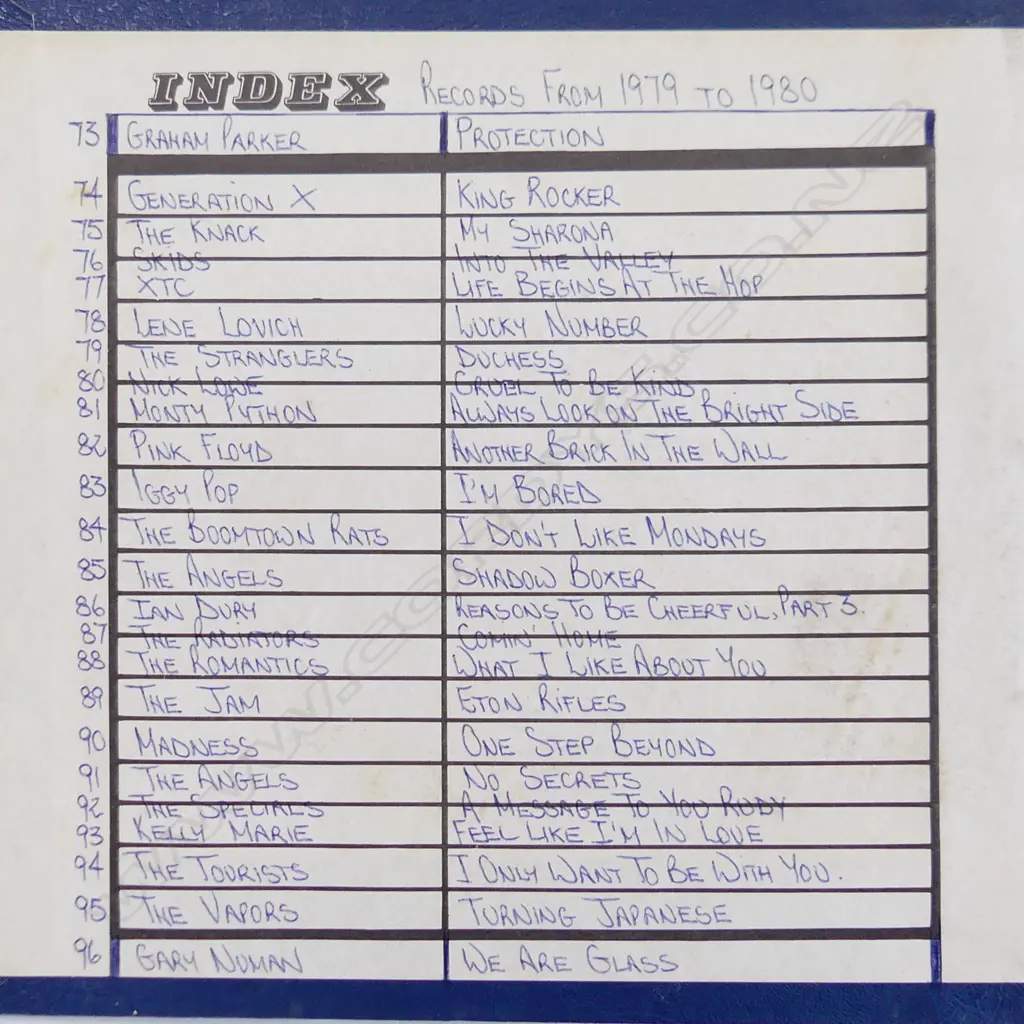 INDEX RECORDS FROM 1979 TO 1980
73 GRAHAM PARKER PROTECTION
74 GENERATION X KING ROCKER
75 THE KNACK MY SHARONA
76 SKIDS INTO THE VALLEY
77 XTC LIFE BEGINS AT THE HOP
78 LENE LOVICH LUCKY NUMBER
79 THE STRANGLERS DUCHESS
80 NICK LOWE CRUEL TO BE KIND
81 MONTY PYTHON ALWAYS LOOK ON THE BRIGHT SIDE
82 PINK FLOYD ANOTHER BRICK IN THE WALL
83 IGGY POP I'M BORED
84 THE BOOMTOWN RATS I DON'T LIKE MONDAYS
85 THE ANGELS SHADOW BOXER
86 IAN DURY REASONS TO BE CHEERFUL, PART 3.
87 THE RADIATORS COMIN' HOME
88 THE ROMANTICS WHAT I LIKE ABOUT YOU
89 THE JAM ETON RIFLES
90 MADNESS ONE STEP BEYOND
91 THE ANGELS NO SECRETS
92 THE SPECIALS A MESSAGE TO YOU RUDY
93 KELLY MARIE FEEL LIKE I'M IN LOVE
94 THE TOURISTS I ONLY WANT TO BE WITH YOU.
95 THE VAPORS TURNING JAPANESE
96 GARY NUMAN WE ARE GLASS